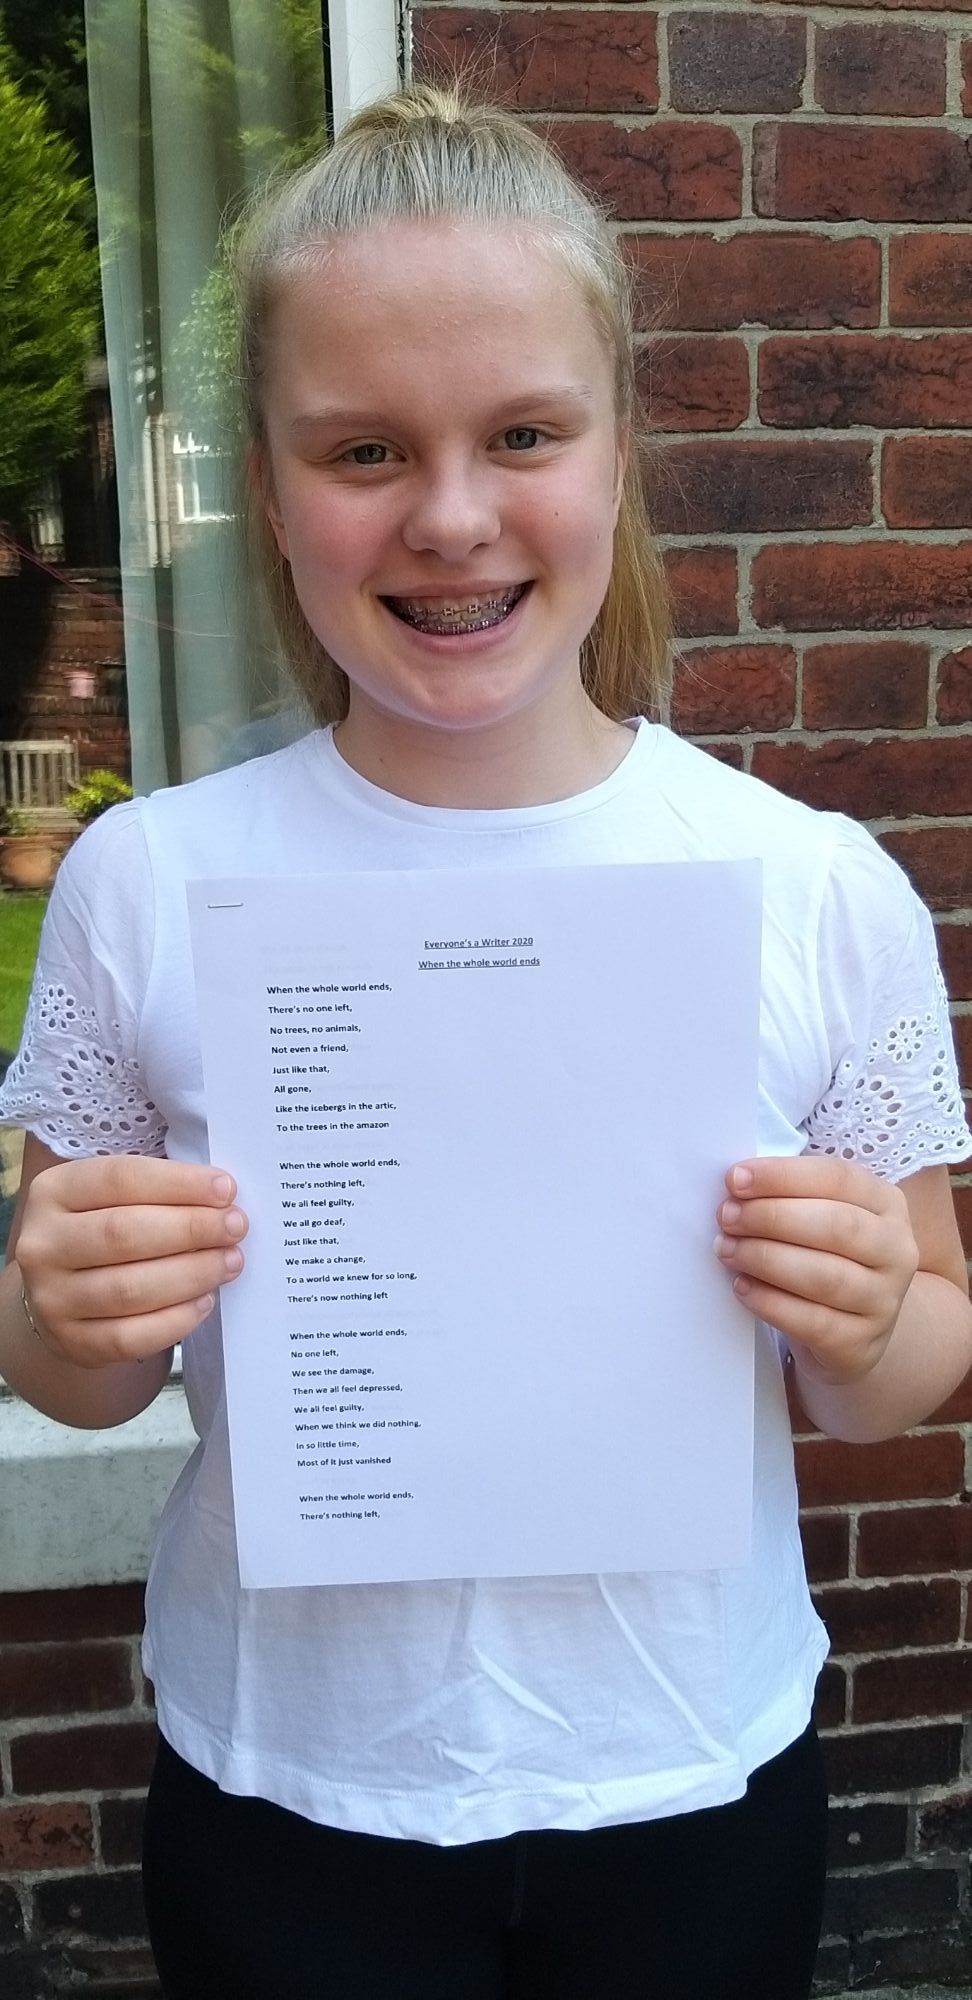 Everyone's a Writer 2020
When the whole world ends
When the whole world ends,
There's no one left,
No trees, no animals,
Not even a friend,
Just like that,
All gone,
Like the icebergs in the artic,
To the trees in the amazon
When the whole world ends,
There's nothing left,
We all feel guilty,
We all go deaf,
Just like that,
We make a change,
To a world we knew for so long,
There's now nothing left
When the whole world ends,
No one left,
We see the damage,
Then we all feel depressed,
We all feel guilty,
When we think we did nothing,
In so little time,
Most of it just vanished
When the whole world ends,
There's nothing left,